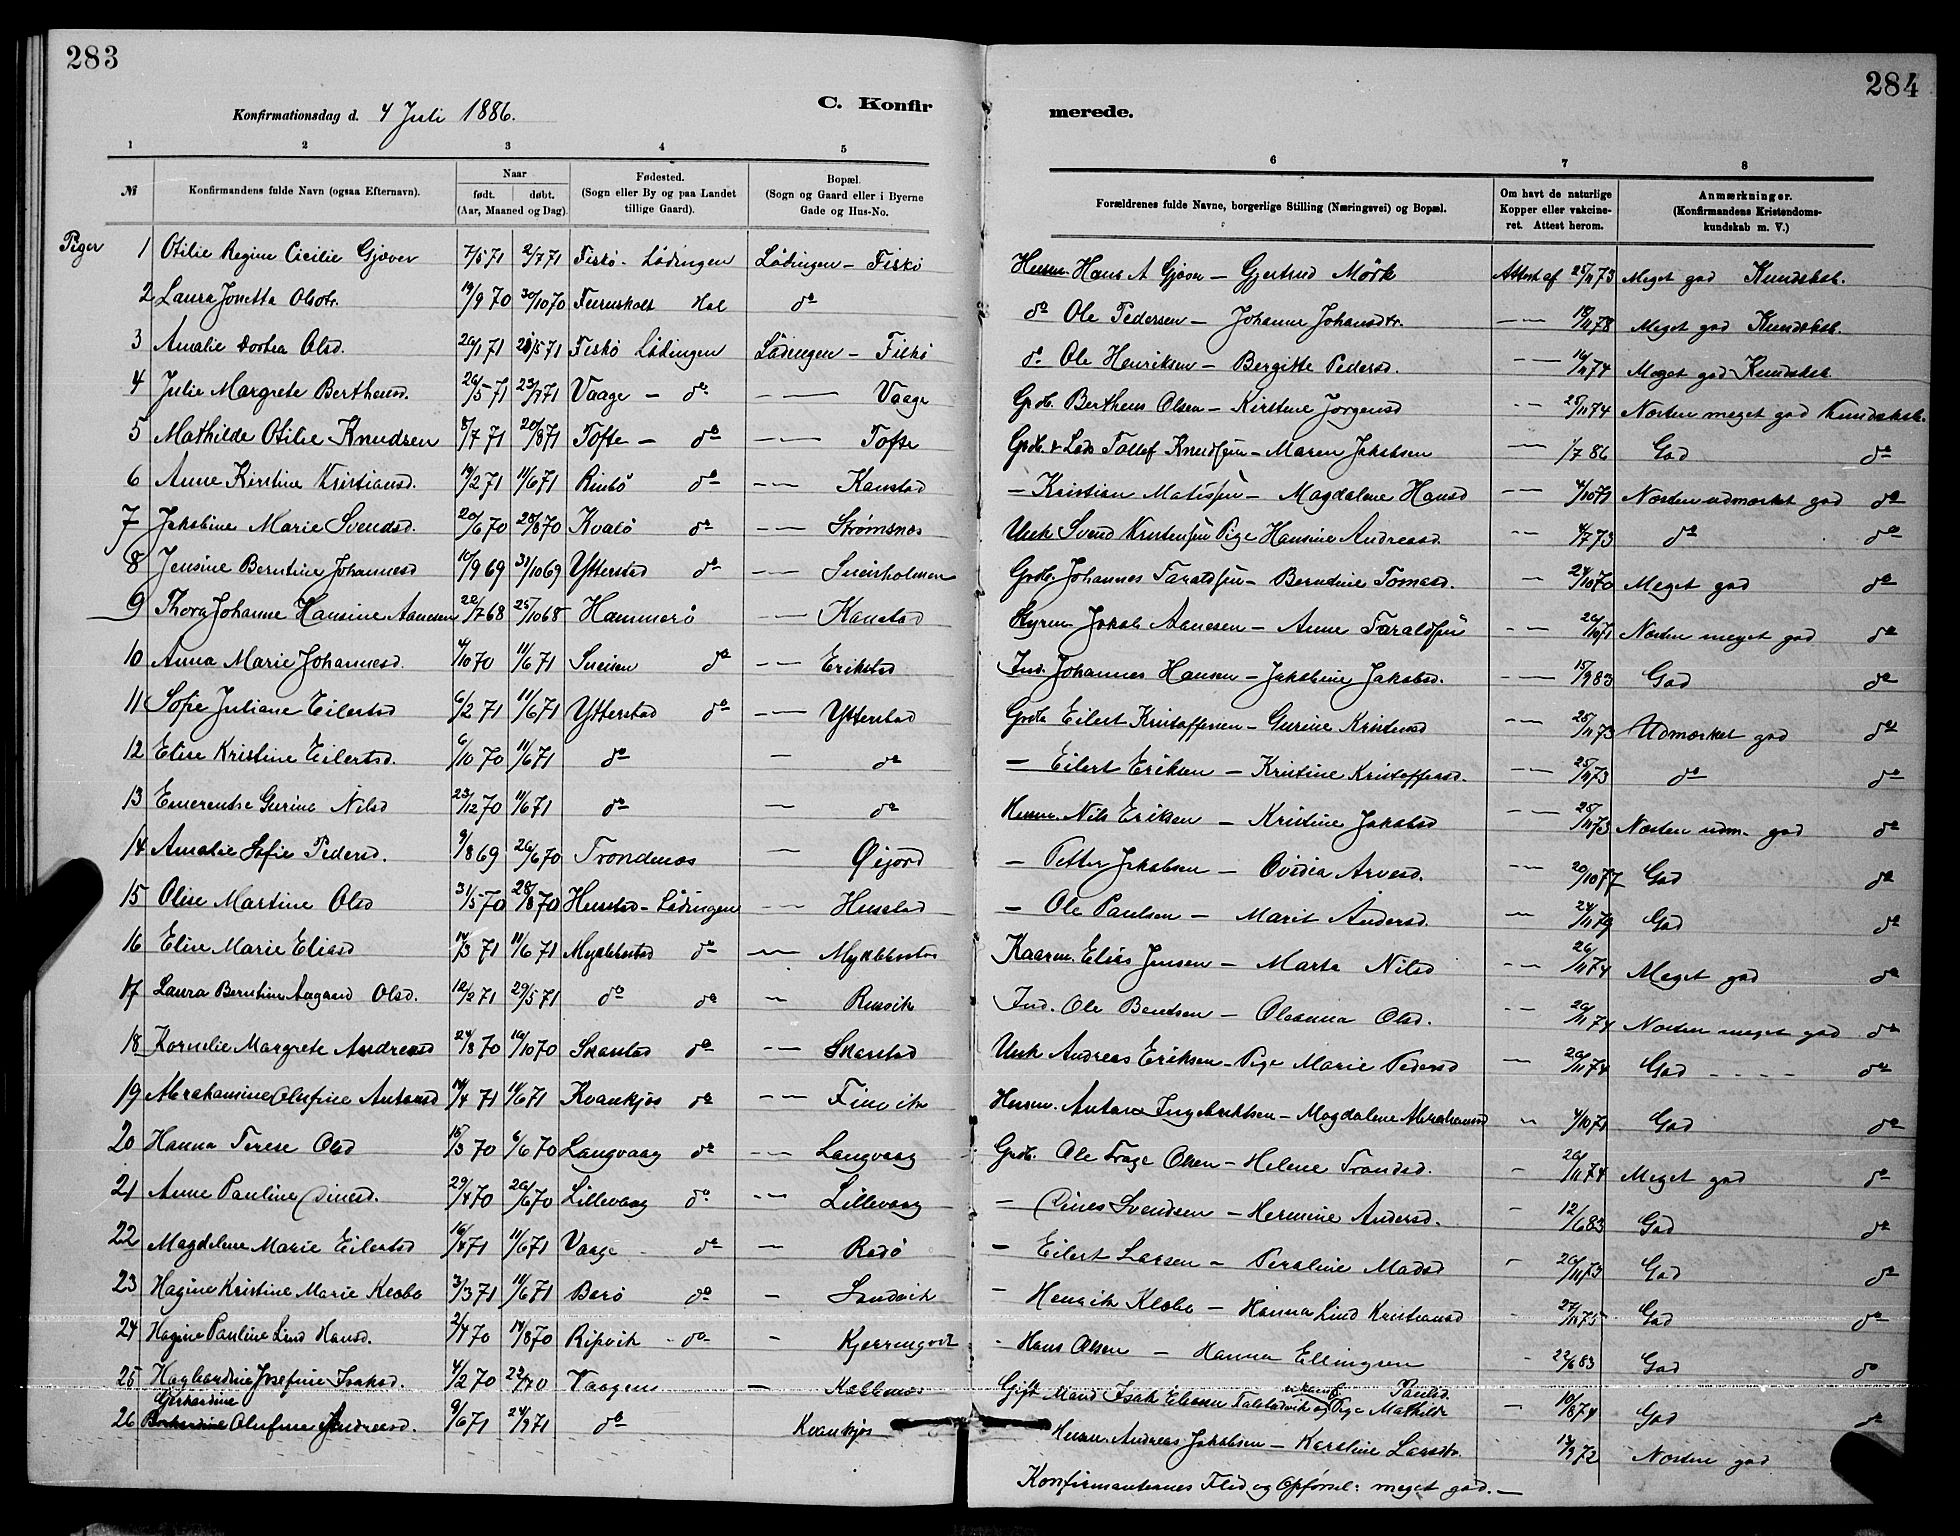 283
284
Konfirmationsdag d. 4 Juli 1886.
C. Konfirmerede.
1 2 3 4 5 6 7 8
№
Konfirmandens fulde Navn (ogsaa Efternavn).
Naar
født. døbt.
(Aar, Maaned og Dag).
Fødested.
(Sogn eller By og paa Landet
tillige Gaard).
Bopæl.
(Sogn og Gaard eller i Byerne
Gade og Hus-No.
Forældrenes fulde Navne, borgerlige Stilling (Næringsvei) og Bopæl.
Om havt de naturlige
Kopper eller vakcine-
ret. Attest herom.
Anmærkninger.
(Konfirmandens Kristendoms-
kundskab m. V.)
Piger
1 Otilie Regine Cicilie Gjæver 7/5 71 2/7 71 Fiskö - Lödingen Lödingen - Fiskö Husm. Hans A Gjæver - Gjertrud Mörk Attest af 25/11 73 Meget god Kundskab.
2 Laura Jonetta Olsdtr. 19/9 70 30/10 70 Furuskolt Hol do do Ole Pedersen - Johanne Johansdtr. - - 18/11 78 Meget god Kundskab.
3 Amalie Dortea Olsd. 20/1 71 28/5 71 Fiskö Lödingen Lödingen - Fiskö do Ole Henriksen - Bergitte Pedersd. - - 16/11 74 Meget god Kundskab
4 Julie Margrete Bertheusd. 26/5 71 23/7 71 Vaage - do - - Vaage Grdb. Bertheus Olsen - Kirstine Jorgensd - - 25/11 74 Næsten meget god Kundskab.
5 Mathilde Otilie Knudsen 8/7 71 20/8 71 Tofte - do - - Tofte Grdb. & Lods Tollef Knudsen - Maren Jakobsen - - 1/7 86 God do
6 Anne Kirstine Kristiansd. 19/2 71 11/6 71 Rinbö do - - Kanstad - Kristian Matissen - Magdalene Hansd - - 4/10 71 Næsten udmærket god do
7 Jakobine Marie Svendsd. 20/6 70 28/8 70 Kvalö do - - Strömsnes Unck Svend Kristensen Pige Hansine Andreasd. - - 4/7 73 do do
8 Jensine Berntine Johannesd 10/9 69 31/10 69 Ytterstad do - - Sneisholmen Grdb. Johannes Taraldsen - Berntine Tomasd. - 24/10 70 Meget god do
9 Thora Johanne Hansine Aanesen 20/7 68 25/10 68 Hammerö - - Kanstad Styrm. Jakob Aanesen - Anne Taraldsen - - 20/10 71 Næsten meget god do
10 Anna Marie Johannesd. 4/10 70 11/6 71 Sneisen do - - Erikstad Ind. Johannes Hansen - Jakobine Jakobsd. - - 15/9 83 God do
11 Sofie Juliane Eilertsd 6/2 71 11/6 71 Ytterstad do - - Ytterstad Grdb Eilert Kristoffersen - Gurine Kristensd - - 25/11 73 Udmærket god do
12 Elise Kristine Eilertsd. 6/10 70 11/6 71 do - do - Eilert Eriksen - Kristine Kristoffersd. - - 25/11 73 do do
13 Emerentse Gurine Nilsd 23/12 70 11/6 71 do - do Husm. Nils Eriksen - Kristine Jakobsd - - 25/11 73 Næsten udm. god do
14 Amalie Sofie Pedersd. 9/8 69 26/6 70 Trondenes - Öijord - Petter Jakobsen - Ovidia Arnesd. - - 20/10 77 God do
15 Oline Martine Olsd 31/5 70 28/8 70 Husstad - Lödingen - - Husstad - Ole Paulsen - Marit Andersd. - 24/11 79 God do
16 Eline Marie Eliasd 14/3 71 11/6 71 Myklebostad do - - Myklebostad Kaarm. Elias Jensen - Marta Nilsd - - 26/11 74 Meget god do
17 Laura Berntine Aagaard Olsd. 12/2 71 29/5 71 do do - Rinvik Ind. Ole Bentsen - Oleanna Olsd. - - 20/11 74 Næsten meget god do
18 Kornelie Margrete Andreasd 24/8 70 16/10 70 Skarstad do - - Skarstad Unck Andreas Eriksen - Pige Marie Pedersd - 20/11 74 God - - - - do
19 Abrahamine Olufine Antonsd 14/4 71 11/6 71 Kvankjös do - - Finvik Husm. Anton Ingebriktsen - Magdalene Abrahamsd - 4/10 71 God do
20 Hanna Terese Olsd 15/3 70 6/6 70 Langvaag do - - Langvaag Grdb. Ole Trage Olsen - Helene Trondsd. - 20/11 74 Meget god do
21 Anne Pauline Dinesd. 29/4 70 26/6 70 Lillevaag do - - Lillevaag - Dines Svendsen - Hermine Andersd. - 12/6 83 God do
22 Magdelene Marie Eilertsd 16/4 71 11/6 71 Vaage - do - Rodö - Eilert Larsen - Peroline Madsd - 20/11 73 God do
23 Hagine Kristine Marie Klæbo 3/3 71 11/6 71 Barö do - Sandvik - Henrik Klæbo - Hanna Lind Kristiansd - 27/11 75 God do
24 Hagine Pauline Lind Hansd. 2/4 70 14/8 70 Ripvik - do - Kjerringvik - Hans Olsen - Hanna Ellingsen - 22/6 83 God do
25 Hagbardine Josefine Isaksd. 4/2 70 22/7 70 Vaagen - Kallenes Gift Mand Isak Eliesen Talstadvik og Pige Mathilde Paulsd. - 10/8 74 God do
Gerhardine
26 Olufine Andreasd. 9/6 71 24/9 71 do Kvankjös Husm. Andreas Jakobsen - Karoline Larsdtr. - 14/9 72 Næsten god
Konfirmanternes Flid og Opförsel: meget god. -